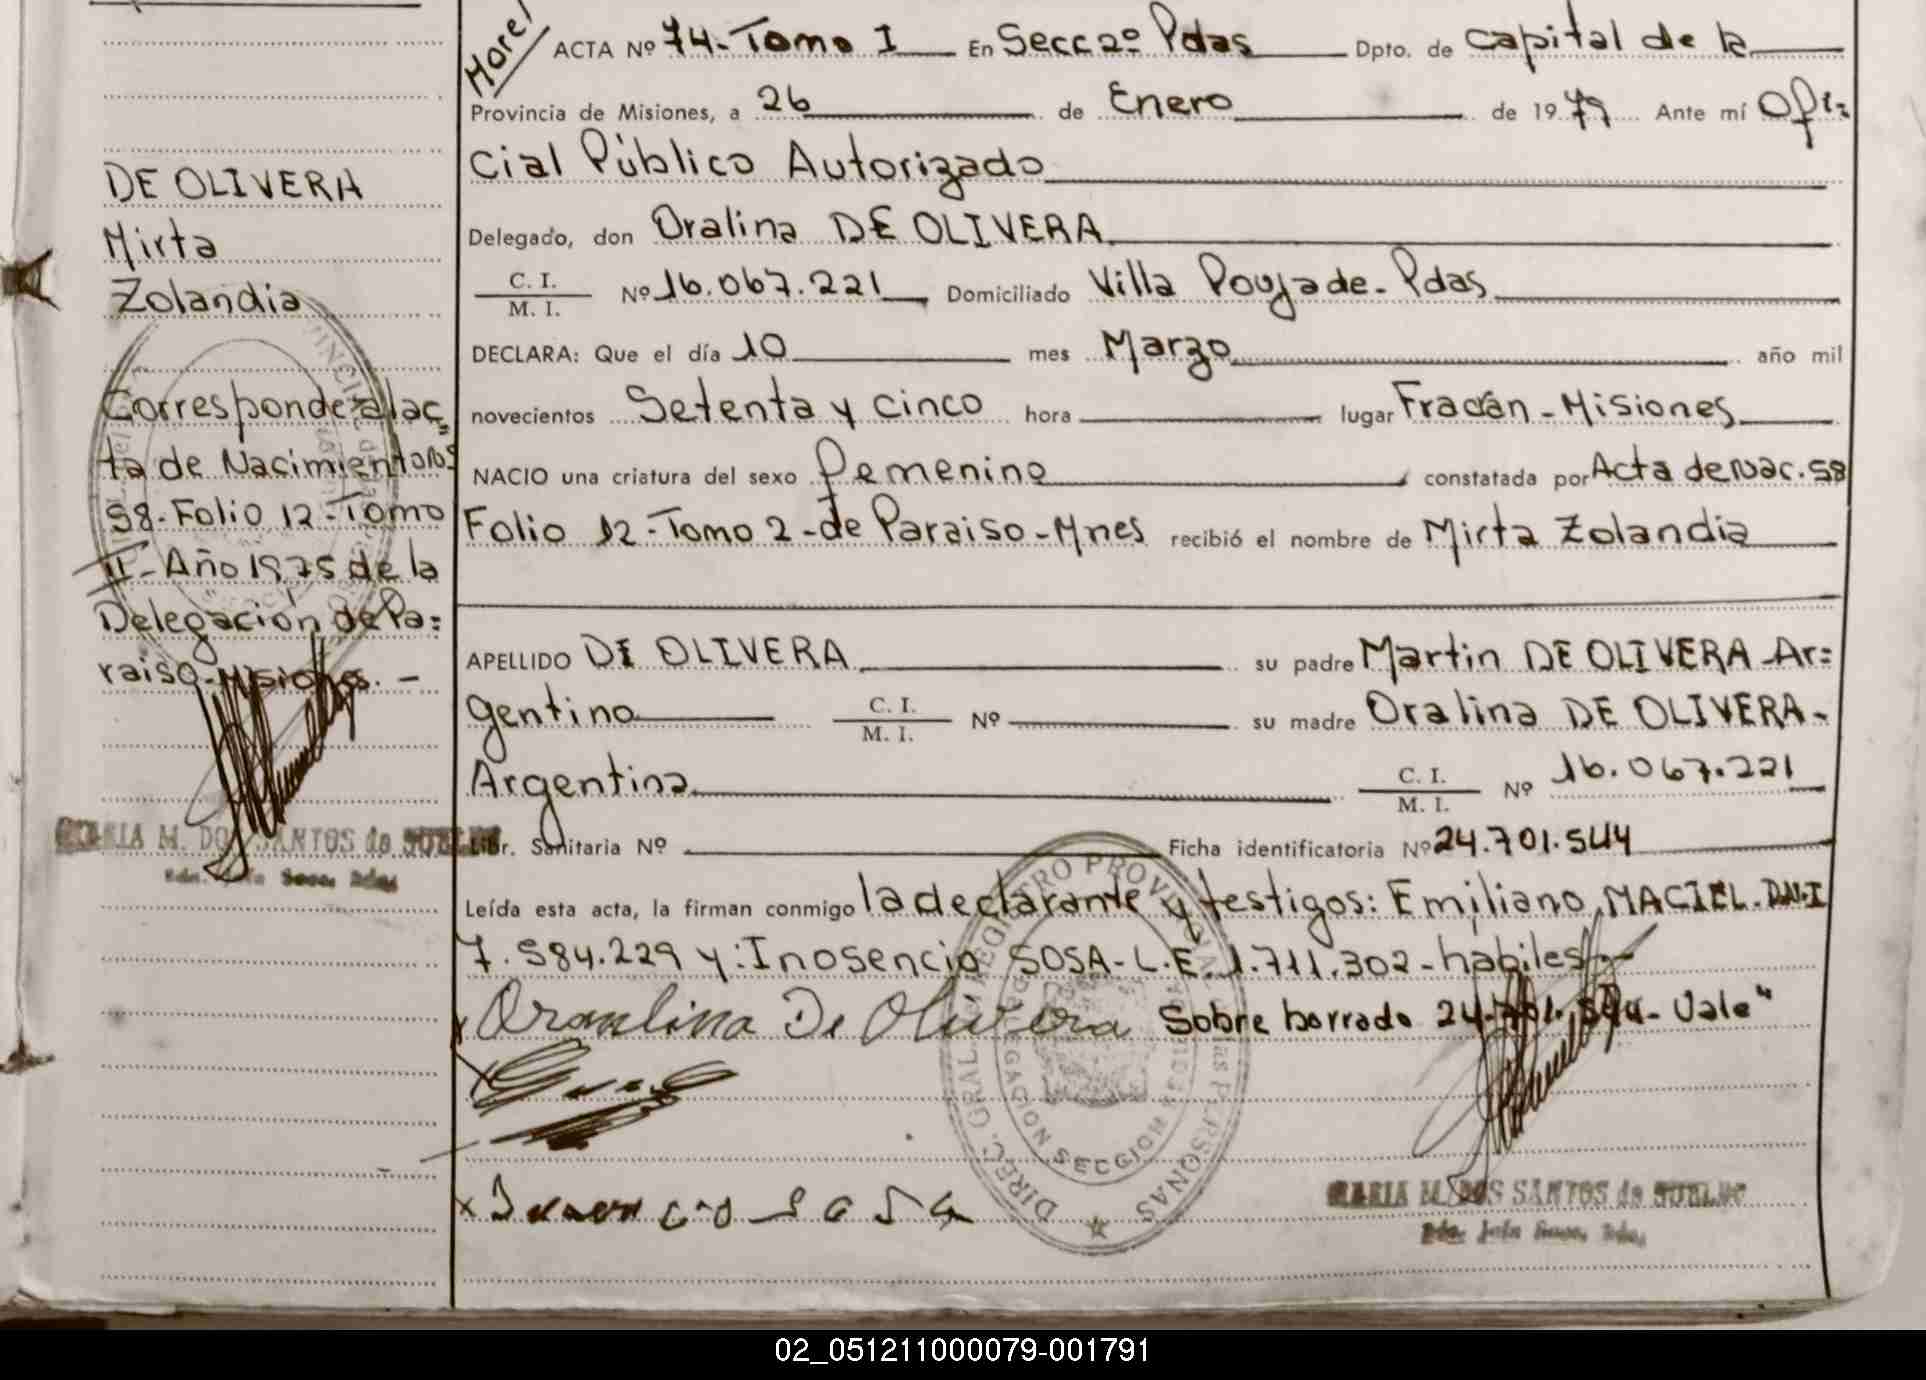 DE OLIVERA
Mirta
Zolandia
Corresponde al ac
ta de Nacimiento Nº
58-Folio 12-Tomo
II-Año 1975 de la
Delegación de Pa=
raiso-Misiones.-
MARIA M. DOS SANTOS de
ACTA Nº 74-Tomo I En Secc 2º Pdas Dpto. de Capital de la
Provincia de Misiones, a 26 de Enero de 1979 Ante mí Ofi=
cial Público Autorizado
Delegado, don Oralina DE OLIVERA
C. I.
M. I. Nº 16.067.221 Domiciliado Villa Poujade-Pdas
DECLARA: Que el día 10 mes Marzo año mil
novecientos Setenta y cinco hora lugar Fracán-Misiones
NACIO una criatura del sexo Femenino constatada por Acta de Nac. 58
Folio 12-Tomo 2-de Paraiso-Mnes recibió el nombre de Mirta Zolandia
APELLIDO DE OLIVERA su padre Martin DE OLIVERA-Ar=
gentino C. I.
M. I. Nº su madre Oralina DE OLIVERA-
Argentina C. I.
M. I. Nº 16.067.221
Libr. Sanitaria Nº Ficha identificatoria Nº 24.701.544
Leída esta acta, la firman conmigo la declarante y testigos: Emiliano MACIEL. D.N.I
7.584.229 y: Inosencio SOSA-L.E. 1.711.302-habiles.-
Oranlina De Olivera Sobre borrado 24.701.544-Vale"
DIREC. GRAL. REGISTRO PROVINCIAL de las PERSONAS
DELEGACION SECCION
MARIA M. DOS SANTOS de
02_051211000079-001791